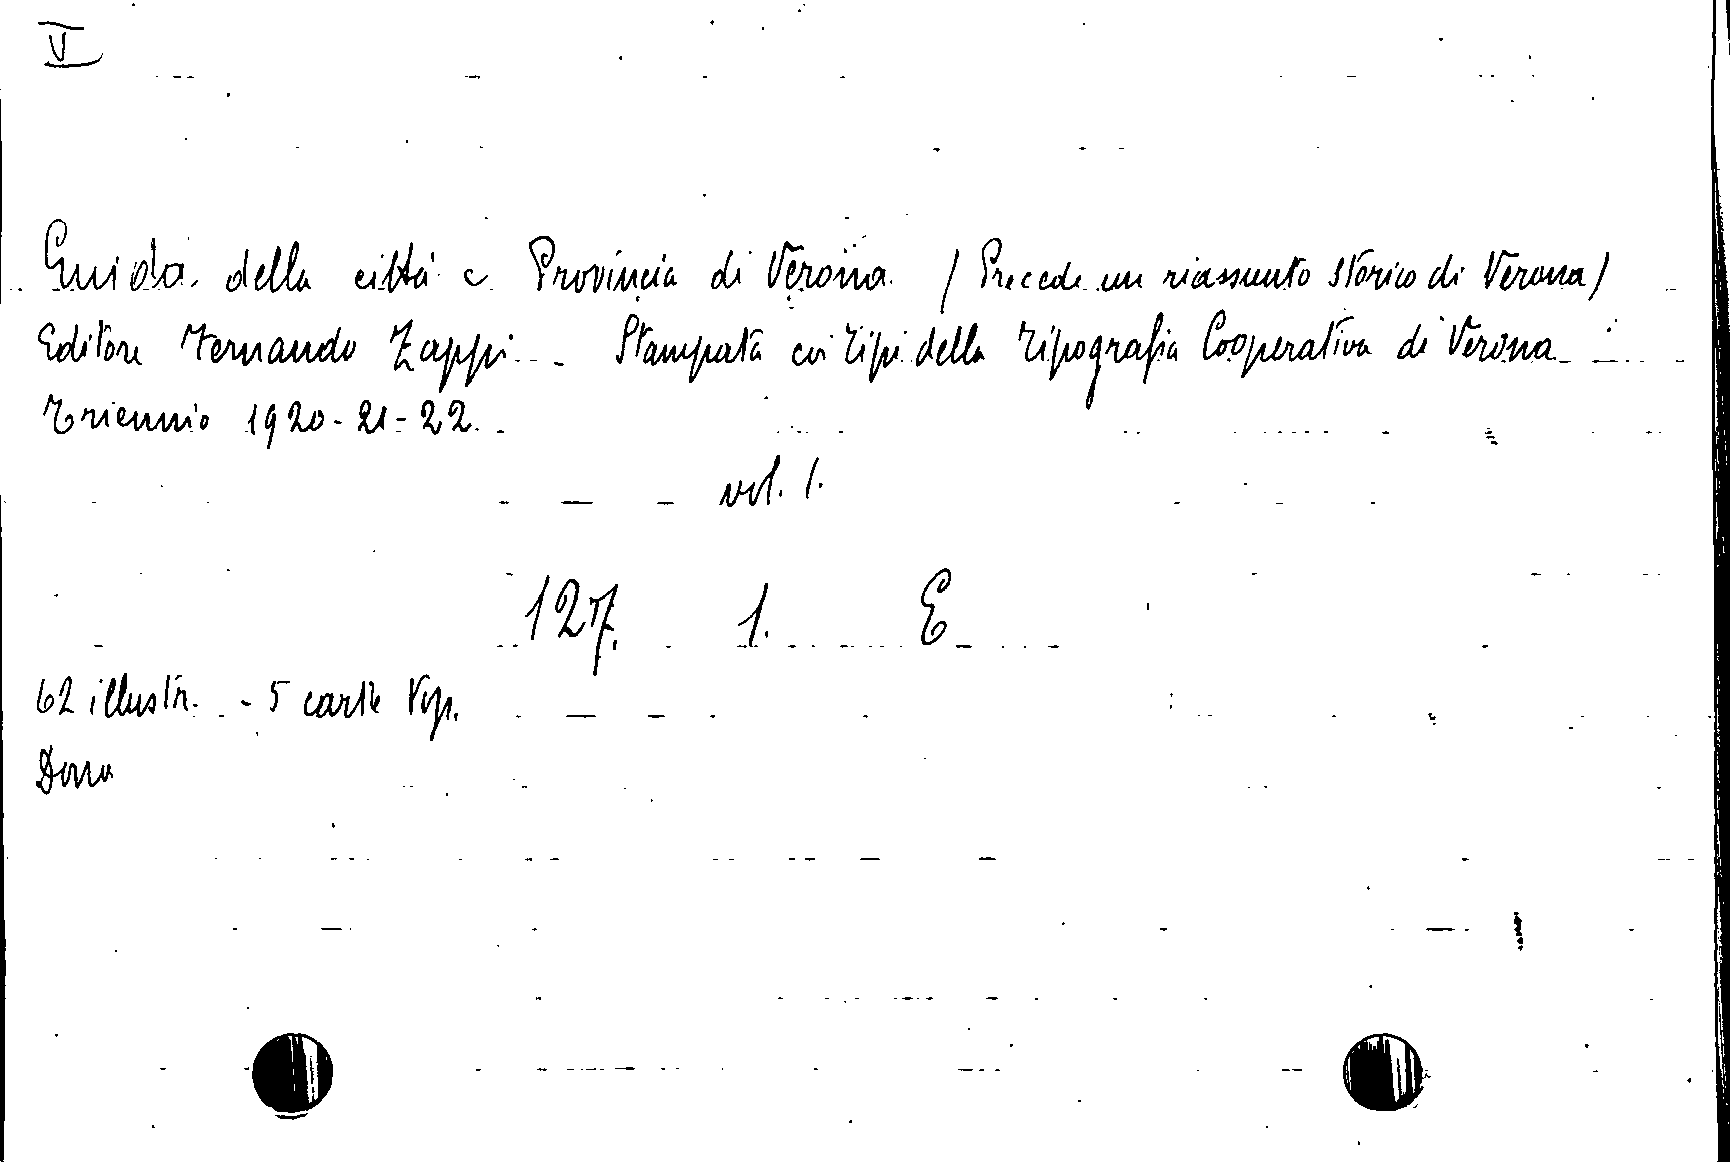 V
Guida della città e Provincia di Verona (Precede un riassunto storico di Verona)
Editore Fernando Zappi - Stampata coi tipi della Tipografia Cooperativa di Verona
Triennio 1920-21-22.
vol. 1.
127. 1. E
62 illustr. - 5 carte top.